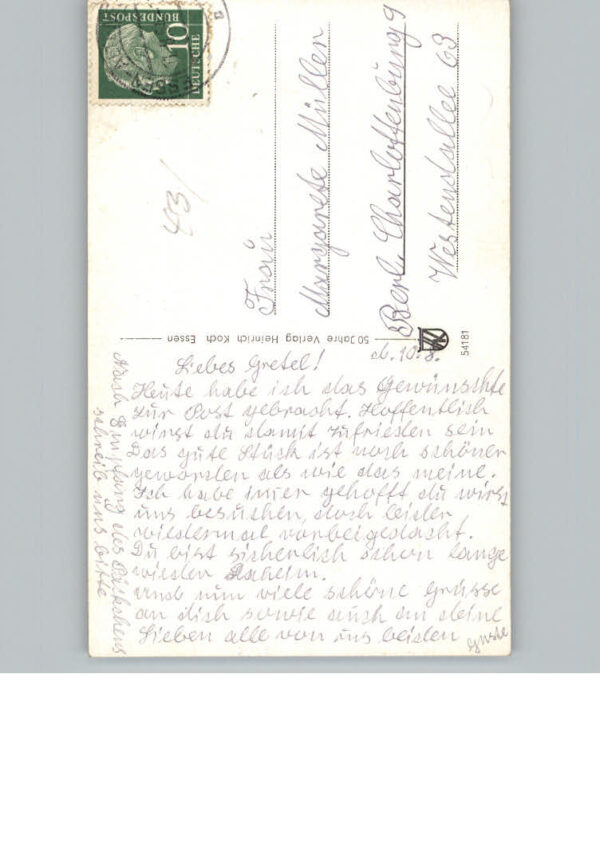 DEUTSCHE
BUNDESPOST
10
43/
Frau
Margarete Müller
Berl. Charlottenburg 9
Westendallee 63
50 Jahre Verlag Heinrich Koch Essen
54181
d. 10.8.
Liebes Gretel!
Heute habe ich das Gewünschte
zur Post gebracht. Hoffentlich
wirst du damit zufrieden sein
Das gute Stück ist noch schöner
geworden als wie das meine.
Ich habe immer gehofft du wirst
uns besuchen, doch leider
wiedermal vorbeigedacht.
Du bist sicherlich schon lange
wieder daheim.
Und nun viele schöne Grüsse
an dich sowie auch an deine
Lieben alle von uns beiden
Nach Empfang des Päckchens
schreib uns bitte